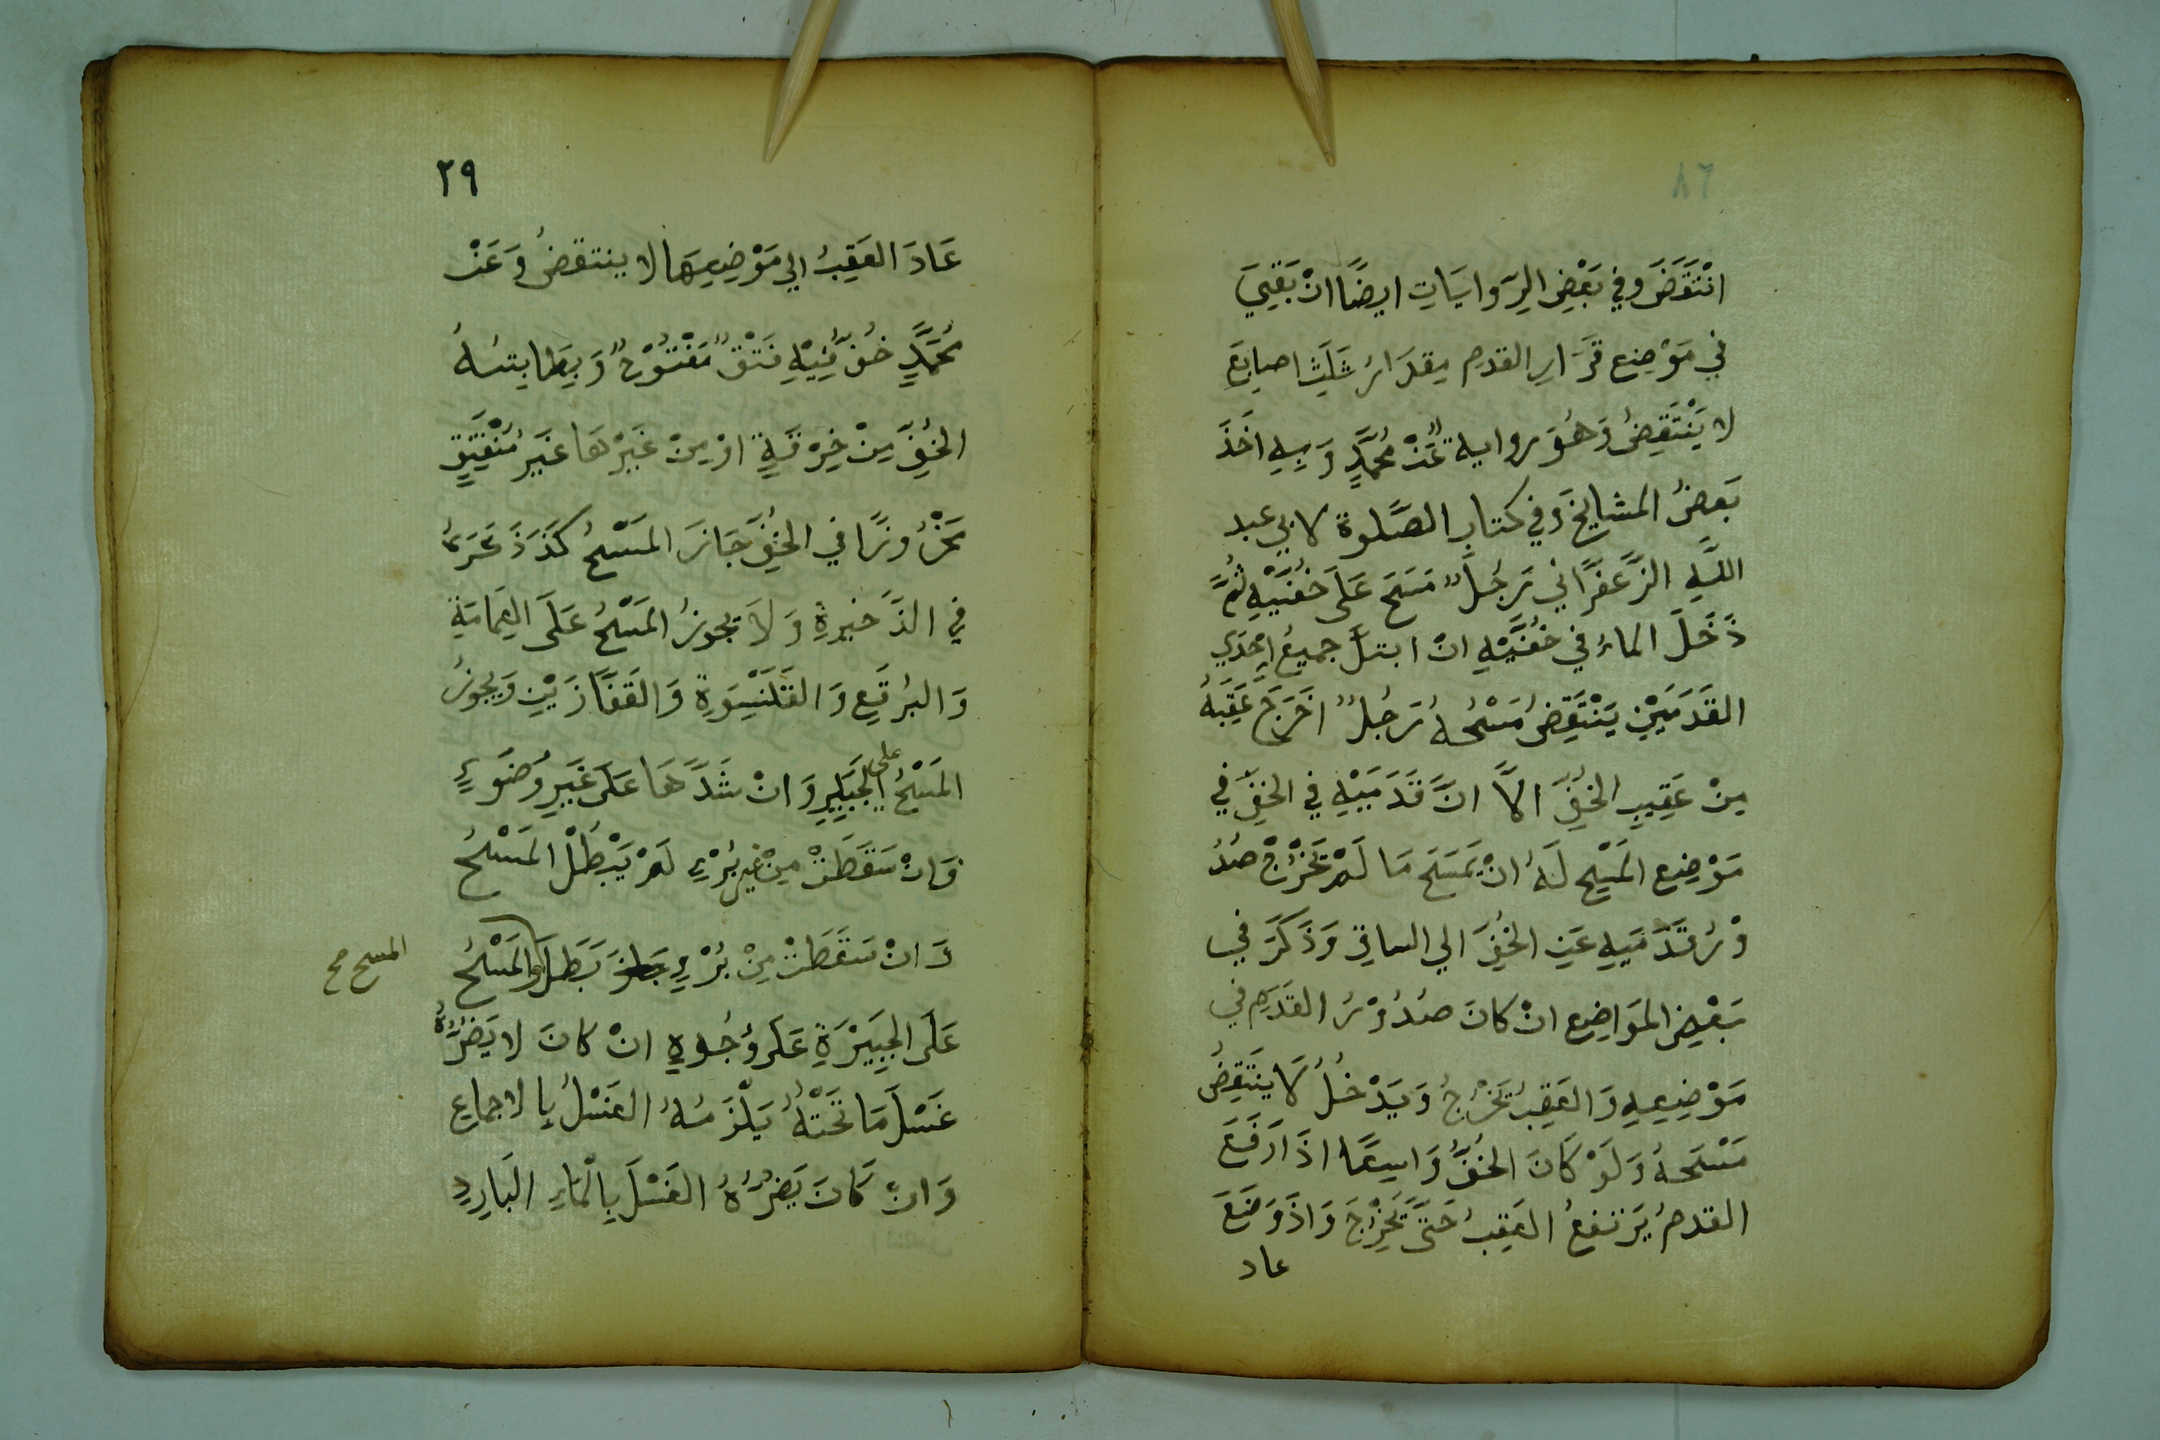 ٨٦
انْتَقَضَ وَفي بَعْضِ الرِّوايَاتِ ايضًا انْ بَقِيَ
في مَوْضِعِ قَرَارِ القدمِ مِقدَارُ ثَلَثِ اصابِعَ
لا يَنْتَقِضُ وَهُوَ رواية عَنْ مُحَمَّدٍ وَبِهِ اخَذَ
بَعضُ المشايخِ وَفي كتابِ الصَّلوة لابي عبد
اللَّهِ الزَّعفَرَاني رَجُلٌ مَسَحَ عَلَى خُفَّيْهِ ثُمَّ
دَخَلَ الماءُ في خُفَّيْهِ انْ ابتلَّ جميعُ اِحْدَي
القَدَمَيْنِ يَنْتَقِضُ مَسْحُهُ رَجُلٌ اخَرَجَ عَقِبَهُ
مِنْ عَقِبِ الخُفِّ الاَّ انَّ قَدَمَيْهِ في الخفِّ في
مَوْضِعِ المَسْحِ لَهُ انْ يَمْسَحَ مَا لَمْ تَخْرُجْ صُدُ
وْرُ قَدَمَيهِ عَنِ الخُفِّ الي الساقِ وَذَكَرَ في
بَعْضِ المَوَاضِعِ انْ كانَ صُدُوْرُ القَدَمِ في
مَوْضِعِهِ وَالعَقِبُ تَخْرُجُ وَيَدْخُلُ لاَ يَنتَقِضُ
مَسْحَهُ وَلَوْ كَانَ الخُفُّ وَاسِعًا اذَا رَفَعَ
القدمُ يَرْتفعُ العَقِبُ حَتَّى تَخْرُجَ وَاذَا وَضَعَ
عاد
٢٩
عَادَ العَقِبُ الي مَوْضِعِهَا لا ينتقضُ وَعَنْ
مُحَمَّدٍ خُفٌّ فِيْهِ فَتْقٌ مَفْتُوْحٌ وَبِطَايتهُ
الخُفِّ مِنْ خِرْقَةٍ اوْ مِنْ غَيْرِهَا غَيرُ مُنْفَتِقٍ
مَخْرُوزًا في الخُفِّ جَازَ المَسْحُ كَذَا ذَكَرَهُ
في الذَّخِيرةِ وَلاَ يجوزُ المَسْحُ عَلَى العِمَامَةِ
وَالبُرقَعِ وَالقَلَنْسِوَةِ وَالقَفَّازَيْنِ وَيجوزُ
المَسْحُ على الجَبَايِرِ وَانْ شَدَّهَا عَلَى غَيرِ وُضوءٍ
وَانْ سَقَطَتْ مِنْ غيرِ بُرْءٍ لَمْ يَبْطُلْ المَسْحُ
وَانْ سَقَطَتْ مِنْ بُرْءٍ بَطَلَ وَالمَسْحُ
المسح صح
عَلَى الجَبِيْرَةِ عَلَى وُجُوهٍ انْ كانَ لا يَضُرُّهُ
غَسْلَ مَا تَحْتَهُ يَلْزَمُهُ الغَسْلُ بِالاجماعِ
وَانْ كَانَ يَضُرُّهُ الغَسْلَ بِالْمَاءِ البَارِدِ